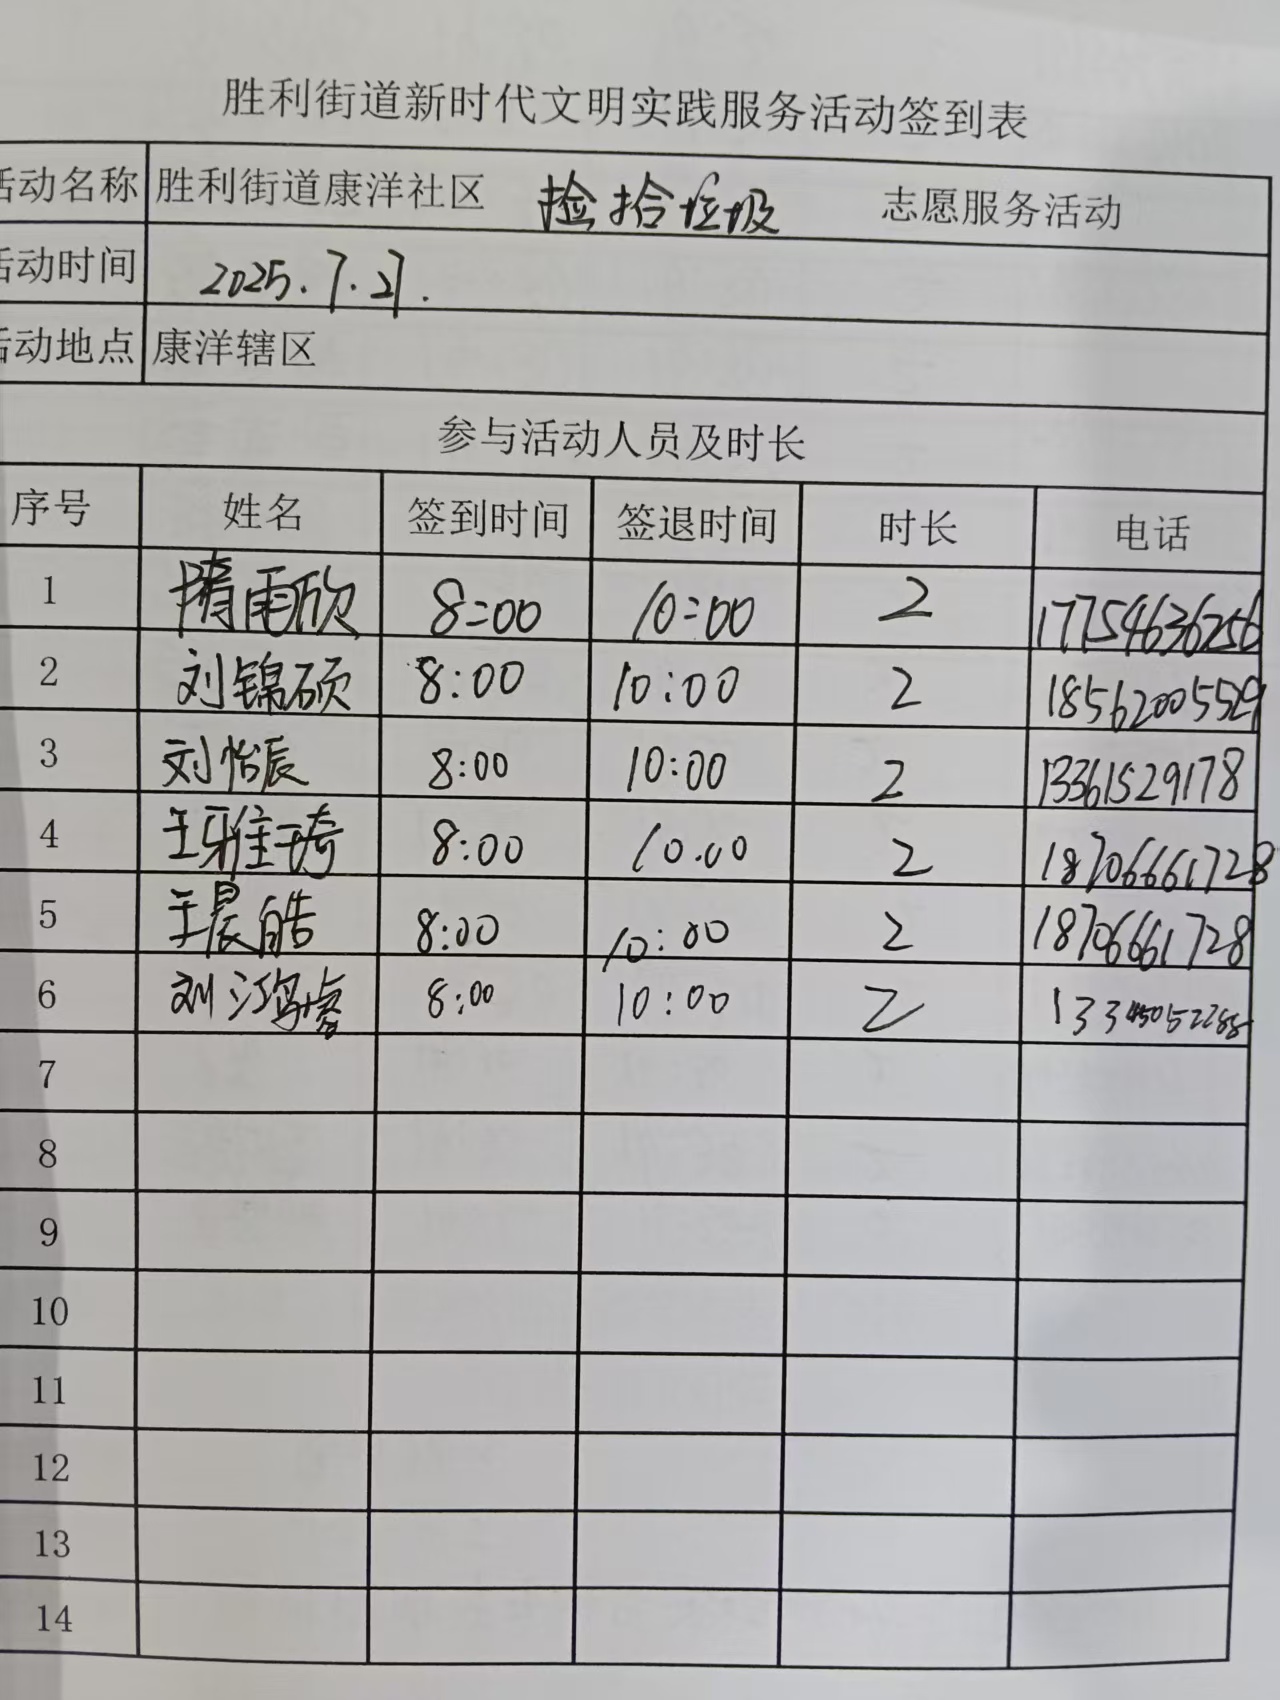 胜利街道新时代文明实践服务活动签到表
活动名称 胜利街道康洋社区 捡拾垃圾 志愿服务活动
活动时间 2025.7.27.
活动地点 康洋辖区
参与活动人员及时长
序号 姓名 签到时间 签退时间 时长 电话
1 隋雨欣 8:00 10:00 2 17754636256
2 刘锦硕 8:00 10:00 2 18562005529
3 刘怡辰 8:00 10:00 2 13361529178
4 王雅琦 8:00 10.00 2 18706661728
5 王晨皓 8:00 10:00 2 18706661728
6 刘鸿睿 8:00 10:00 2
7
8
9
10
11
12
13
14